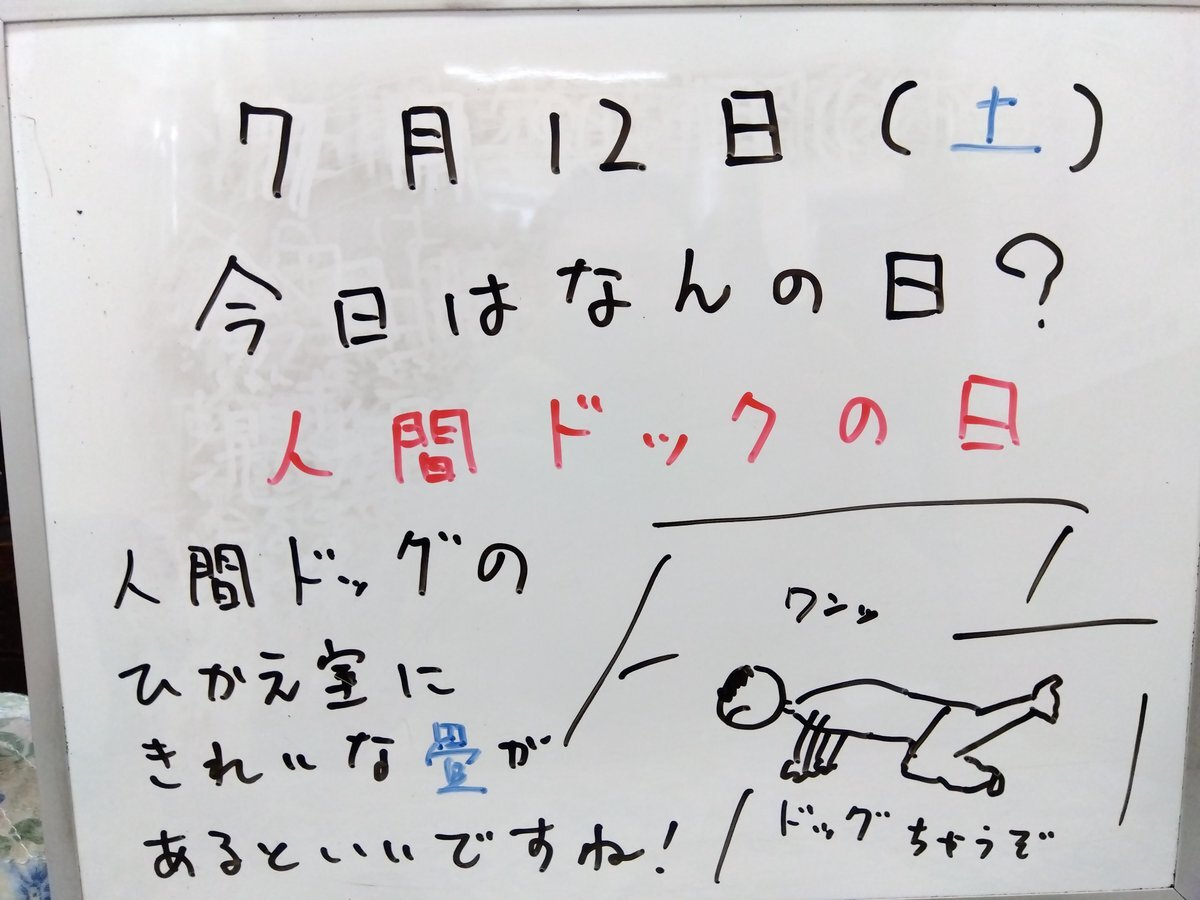 7月12日(土)
今日はなんの日?
人間ドックの日
人間ドッグの
ひかえ室に
きれいな畳が
あるといいですね!
ワンッ
ドッグちゃうぞ